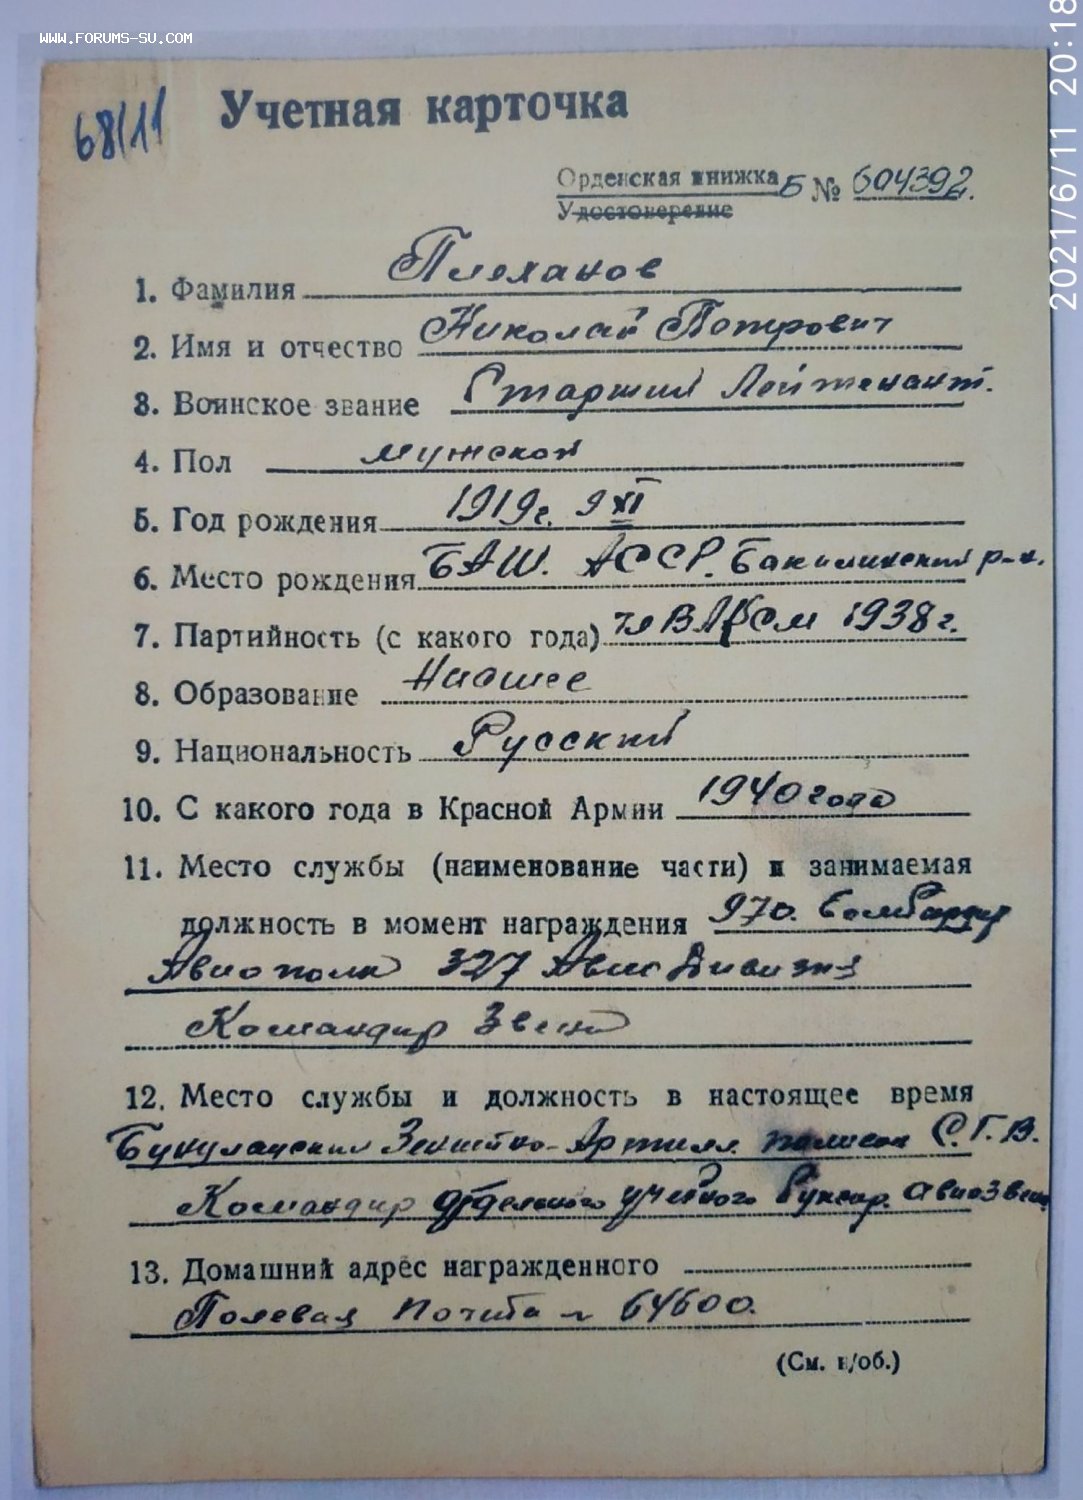 www.forums-su.com
2021/6/11 20:18
68/11
Учетная карточка
Орденская книжка Б № 604392.
Удостоверение
1. Фамилия Плеханов
2. Имя и отчество Николай Петрович
3. Воинское звание Старший Лейтенант.
4. Пол мужской
5. Год рождения 1919г. 9 XI
6. Место рождения БАШ. АССР. Бакалинский р-н.
7. Партийность (с какого года) чл ВЛКСМ 1938г.
8. Образование Низшее
9. Национальность Русский
10. С какого года в Красной Армии 1940 года
11. Место службы (наименование части) и занимаемая
должность в момент награждения 970. бомбардир
Авиополк 327 Авио Дивизия
Командир Звена
12. Место службы и должность в настоящее время
Зенитно-Артилл. С.Г.В.
Командир отдельного учебного буксир. авиаЗвена
13. Домашний адрес награжденного
Полевая Почта № 64600.
(См. н/об.)